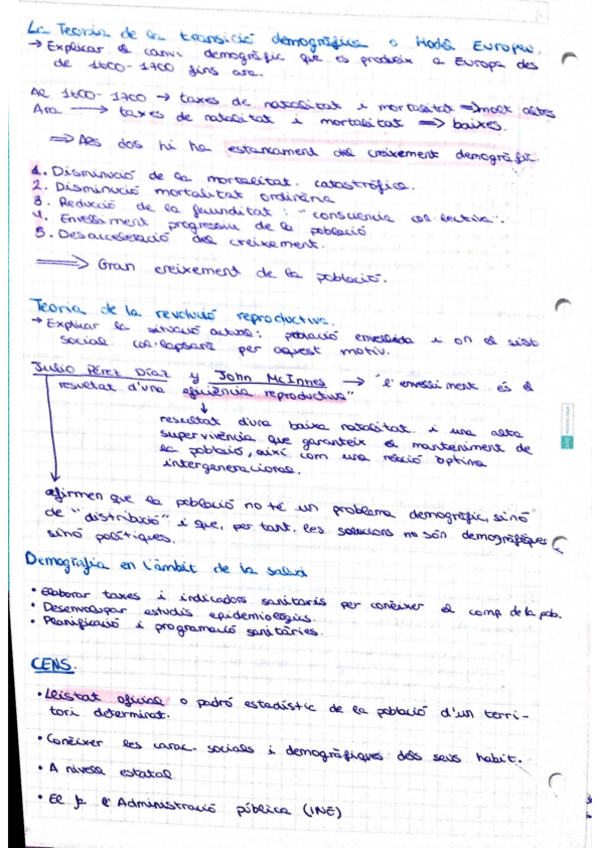 La Teoria de la transició demogràfica o Model Europeu.
→ Explicar el canvi demogràfic que es produeix a Europa des
de 1600-1700 fins ara.
Al 1600-1700 → taxes de natalitat i mortalitat ⇒ molt altes
Ara → taxes de natalitat i mortalitat ⇒ baixes.
⇒ Als dos hi ha estancament del creixement demogràfic.
1. Disminució de la mortalitat catastròfica.
2. Disminució mortalitat ordinària
3. Reducció de la fecunditat: "consciència col·lectiva".
4. Envelliment progressiu de la població
5. Desacceleració del creixement.
⇒ Gran creixement de la població.
Teoria de la revolució reproductiva.
→ Explicar la situació actual: població envellida i on el sist
social col·lapsarà per aquest motiu.
Julio Pérez Díaz y John McInnes → "l'envelliment és el
resultat d'una eficiència reproductiva"
↓
resultat d'una baixa natalitat i una alta
supervivència que garanteix el manteniment de
la població, així com una relació òptima
intergeneracional.
afirmen que la població no té un problema demogràfic, sinó
de "distribució" i que, per tant, les solucions no són demogràfiques
sinó polítiques.
Demografia en l'àmbit de la salut
• Elaborar taxes i indicadors sanitaris per conèixer el comp. de la pob.
• Desenvolupar estudis epidemiològics.
• Planificació i programació sanitàries.
CENS.
• Llistat oficial o padró estadístic de la població d'un terri-
tori determinat.
• Conèixer les carac. socials i demogràfiques dels seus habit.
• A nivell estatal
• El fa l'Administració pública (INE)